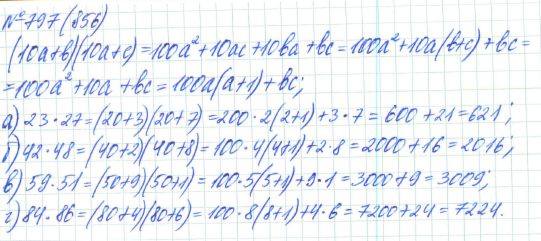 № 797 (856)
(10а+в)(10а+с) = 100а²+10ас+10ва+вс = 100а²+10а(в+с)+вс =
= 100а²+10а+вс = 100а(а+1)+вс;
а) 23·27 = (20+3)(20+7) = 200·2(2+1)+3·7 = 600+21 = 621;
б) 42·48 = (40+2)(40+8) = 100·4(4+1)+2·8 = 2000+16 = 2016;
в) 59·51 = (50+9)(50+1) = 100·5(5+1)+9·1 = 3000+9 = 3009;
г) 84·86 = (80+4)(80+6) = 100·8(8+1)+4·6 = 7200+24 = 7224.